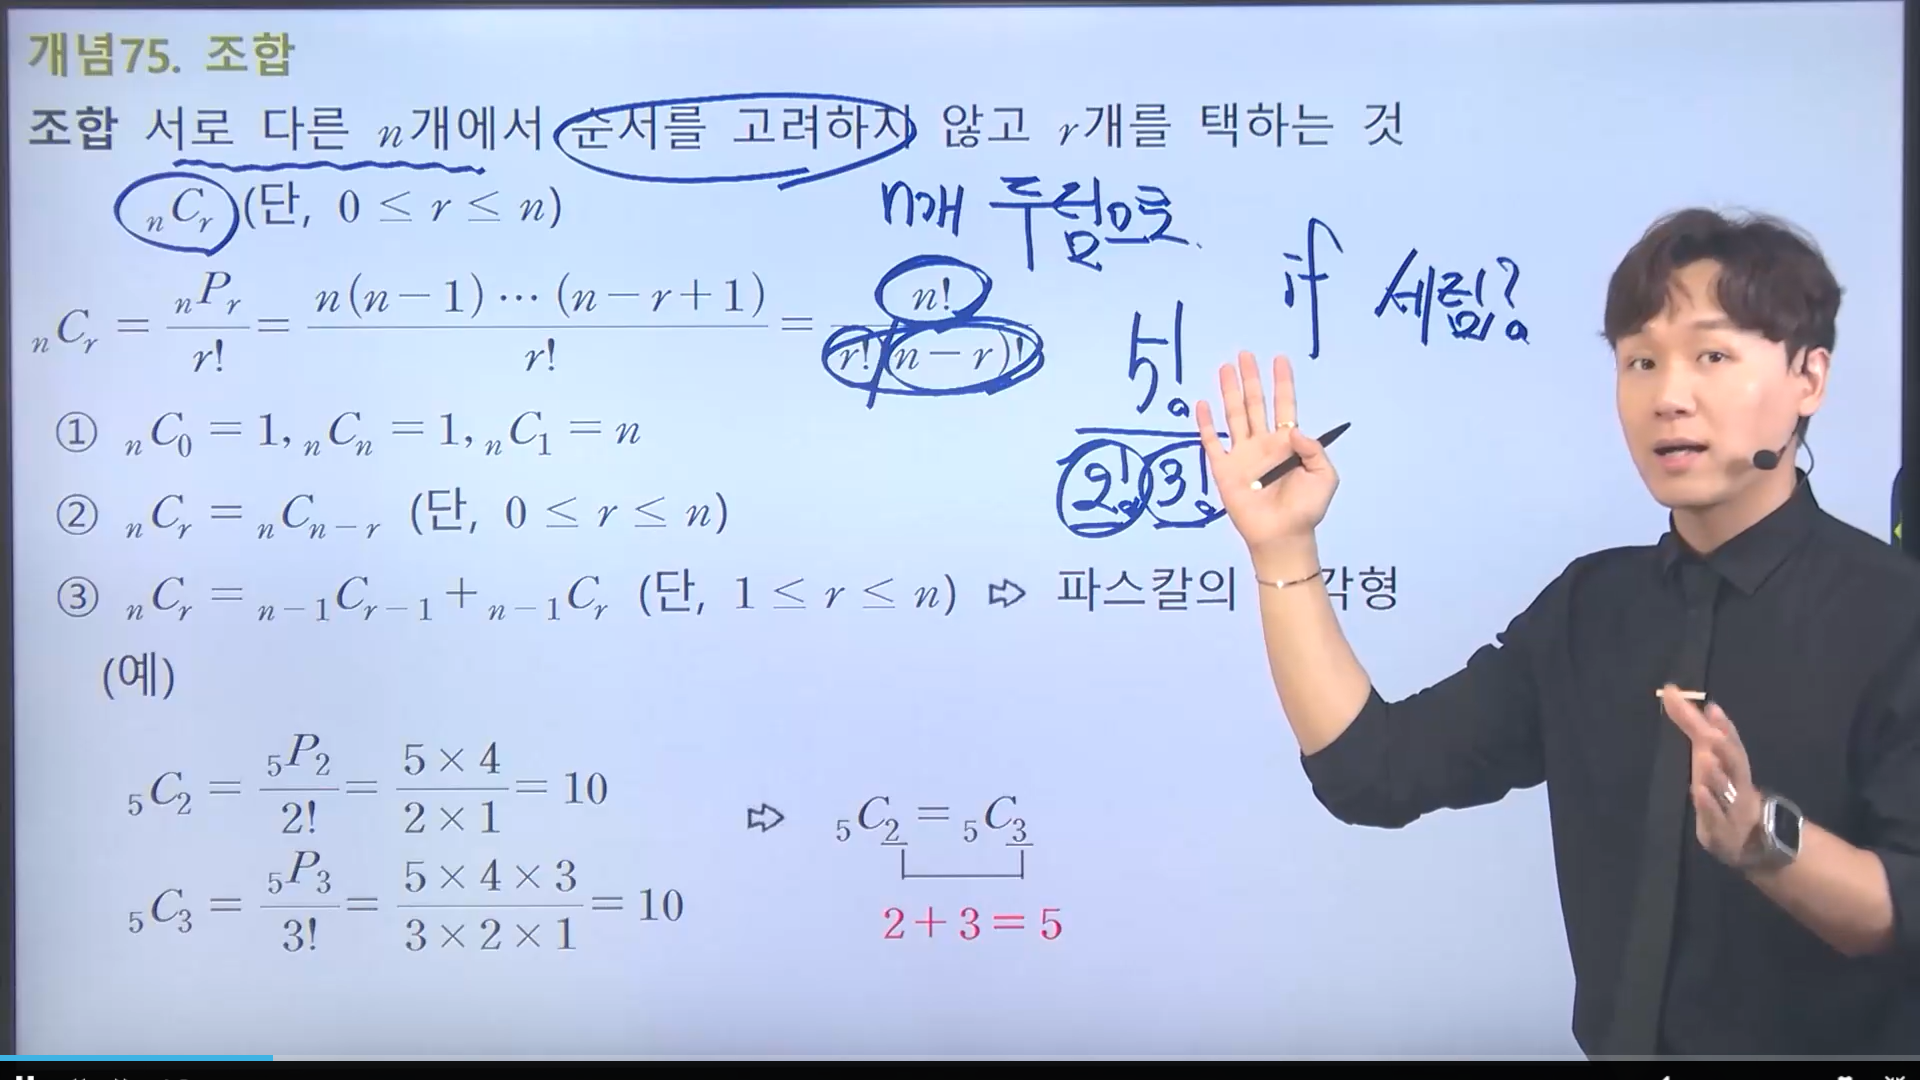 개념75. 조합
조합 서로 다른 n개에서 순서를 고려하지 않고 r개를 택하는 것
nCr (단, 0 ≤ r ≤ n)
n개 두 묶음으로
if 세 묶?
nCr = nPr / r! = n(n−1)⋯(n−r+1) / r! = n! / r!(n−r)!
5! / 2! 3!
① nC0 = 1, nCn = 1, nC1 = n
② nCr = nCn−r (단, 0 ≤ r ≤ n)
③ nCr = n−1Cr−1 + n−1Cr (단, 1 ≤ r ≤ n) ⇨ 파스칼의 각형
(예)
5C2 = 5P2 / 2! = 5 × 4 / 2 × 1 = 10
⇨ 5C2 = 5C3
5C3 = 5P3 / 3! = 5 × 4 × 3 / 3 × 2 × 1 = 10
2 + 3 = 5